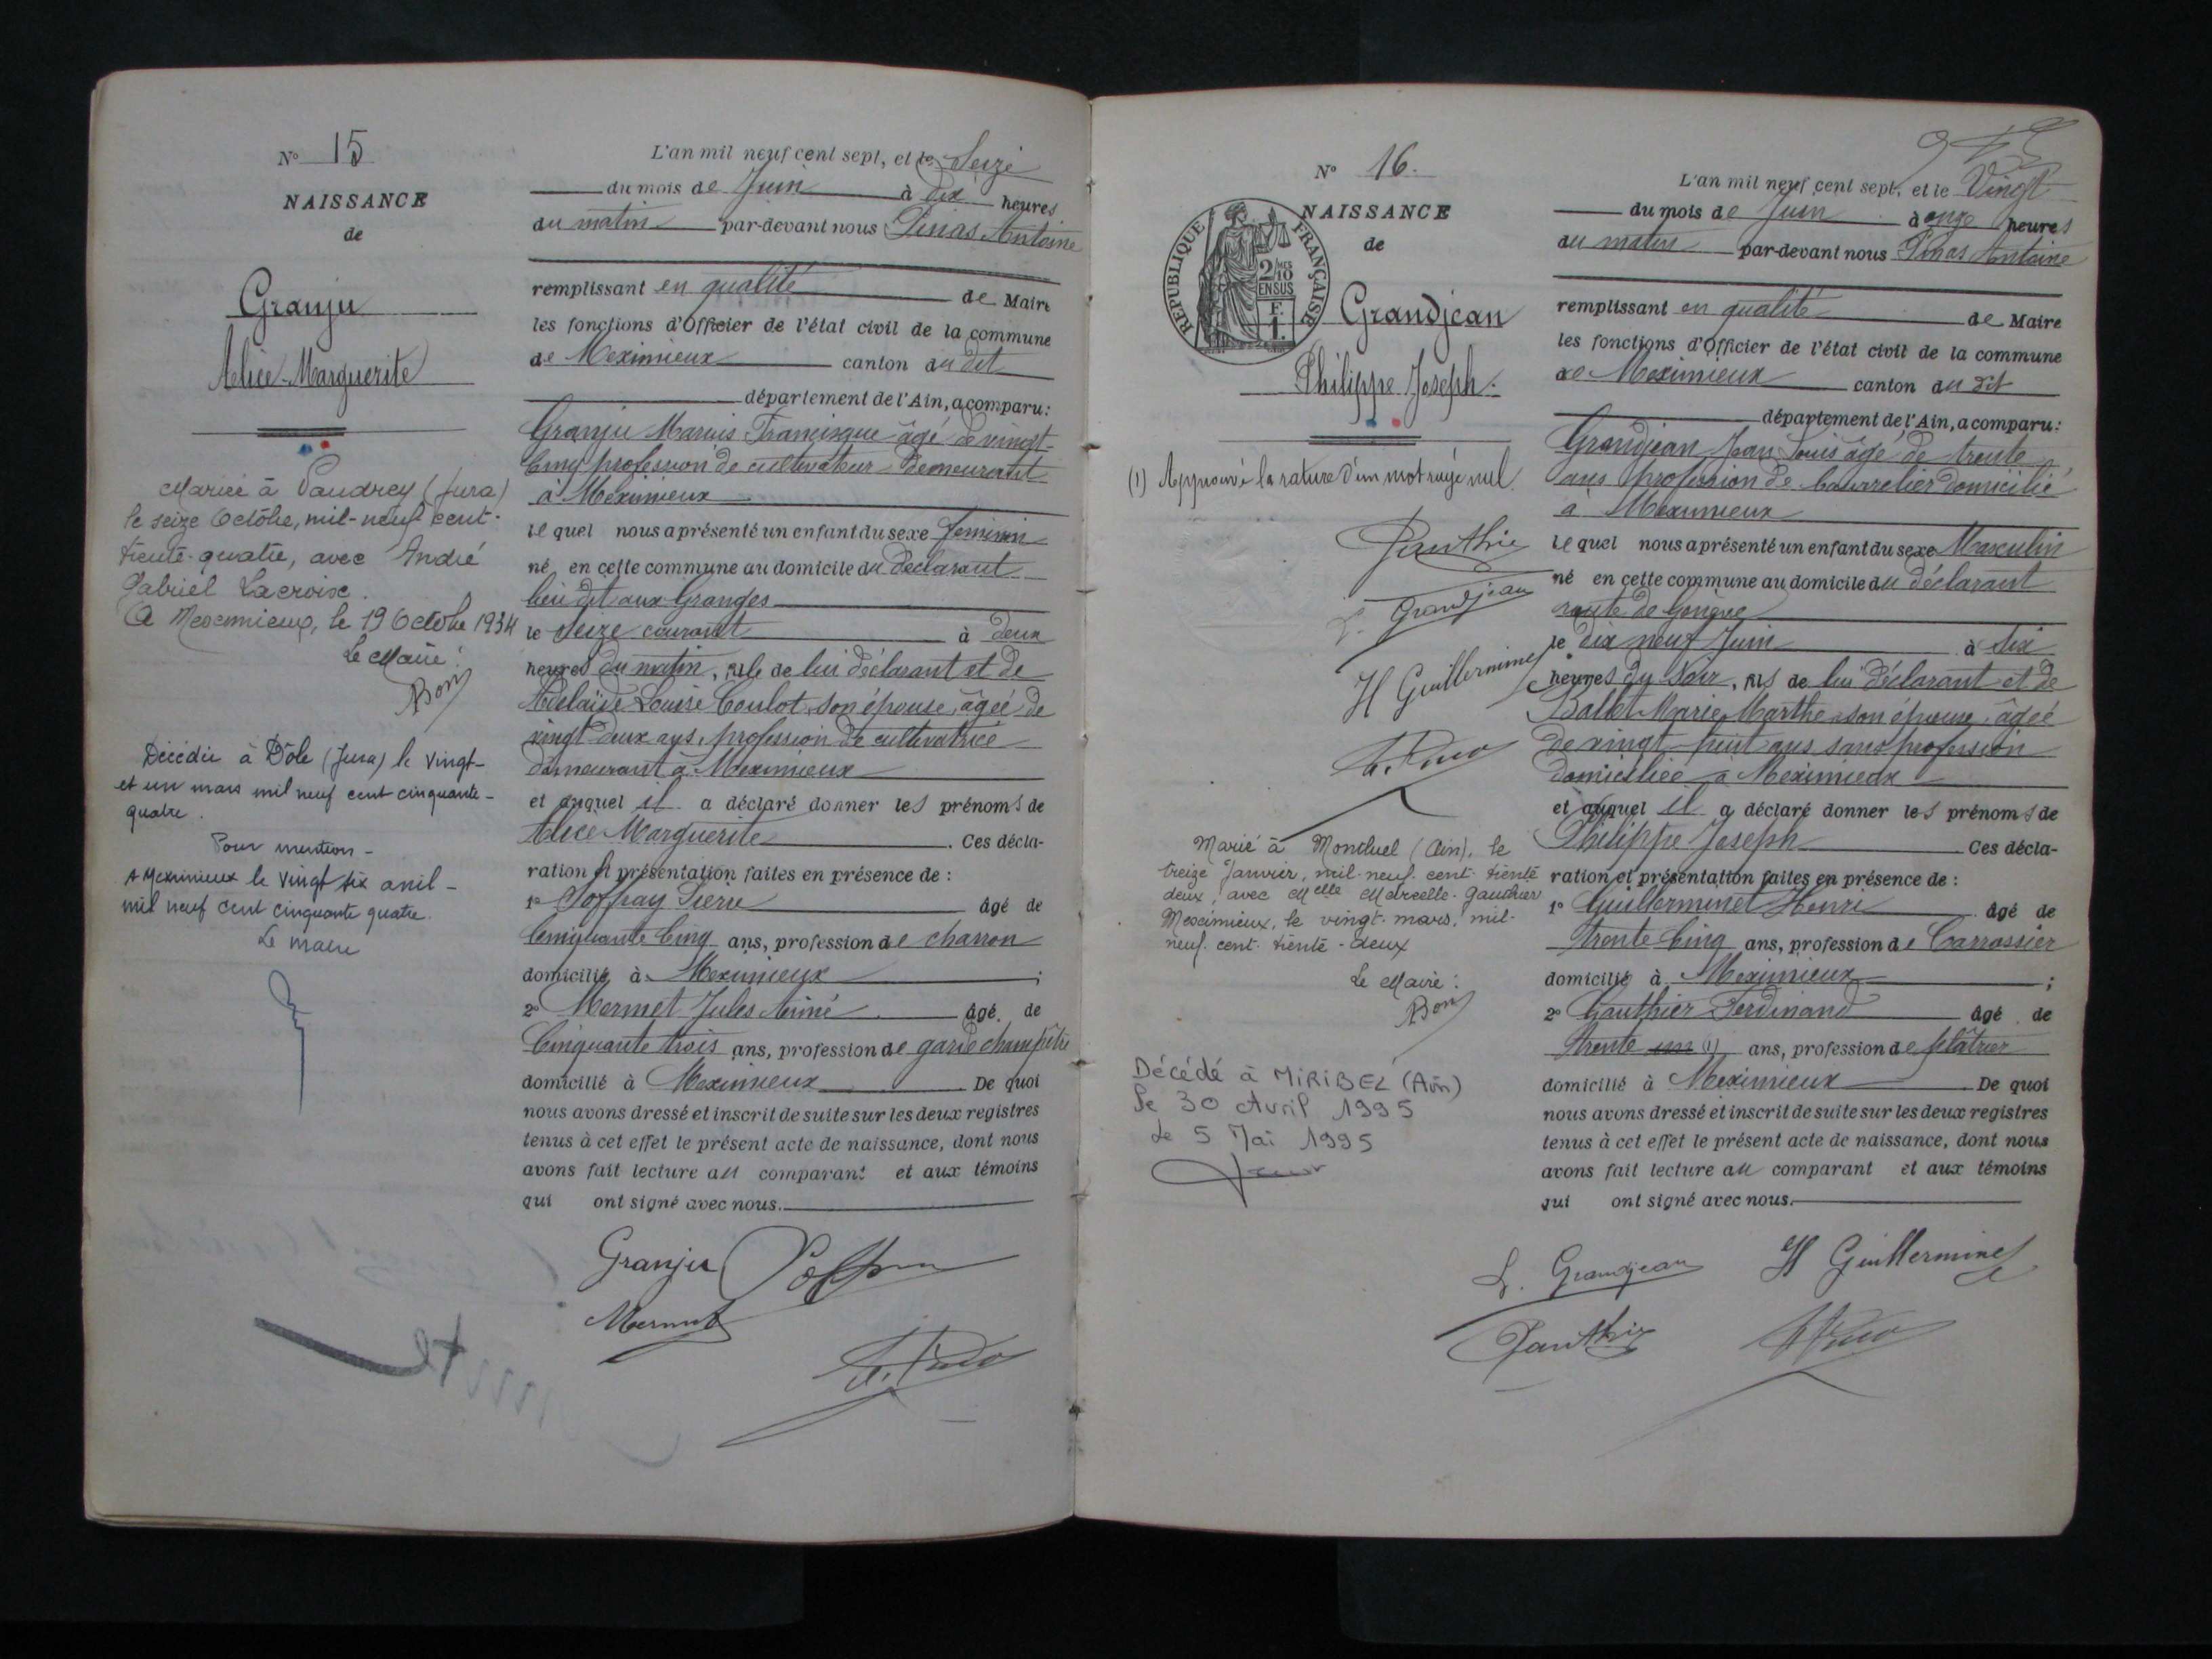 N° 15
NAISSANCE
de
Granju
Alice-Marguerite
Mariée à Vaudrey (Jura)
le seize Octobre, mil-neuf cent-
trente-quatre, avec André
Gabriel Lacroix.
A Meximieux, le 19 Octobre 1934
Le Maire :
Bon
Décédée à Dôle (Jura) le vingt-
et un mars mil neuf cent cinquante-
quatre.
Pour mention -
A Meximieux le vingt six avril -
mil neuf cent cinquante quatre.
Le maire
L'an mil neuf cent sept, et le Seize
du mois de Juin à dix heures
du matin par-devant nous Pinas Antoine
remplissant en qualité de Maire
les fonctions d'Officier de l'état civil de la commune
de Meximieux canton du dit
département de l'Ain, a comparu :
Granju Marius Francisque âgé de vingt-
Cinq profession de cultivateur demeurant
à Meximieux
lequel nous a présenté un enfant du sexe feminin
né en cette commune au domicile du déclarant
lieu dit aux Granges
le seize courant à deux
heures du matin, fille de lui déclarant et de
Adelaïde Louise Coulot son épouse, âgée de
vingt deux ans, profession de cultivatrice
demeurant à Meximieux
et auquel il a déclaré donner les prénoms de
Alice Marguerite. Ces décla-
ration et présentation faites en présence de :
1° Joffray Pierre âgé de
Cinquante Cinq ans, profession de charron
domicilié à Meximieux ;
2° Mermet Jules Aimé âgé de
Cinquante trois ans, profession de garde champêtre
domicilié à Meximieux. De quoi
nous avons dressé et inscrit de suite sur les deux registres
tenus à cet effet le présent acte de naissance, dont nous
avons fait lecture au comparant et aux témoins
qui ont signé avec nous.
Granju
Mermet
N° 16.
NAISSANCE
de
REPUBLIQUE FRANÇAISE
2/10 MES
EN SUS
F.
1.
Grandjean
Philippe Joseph.
(1) Approuvé la rature d'un mot rayé nul.
Gauthier
L. Grandjean
H Guillerminet
Marié à Montluel (Ain), le
treize Janvier, mil-neuf-cent-trente
deux, avec Melle Marcelle Gauthier
Meximieux, le vingt-mars, mil-
neuf-cent-trente-deux
Le Maire :
Bon
Décédé à MIRIBEL (Ain)
le 30 Avril 1995
Le 5 Mai 1995
L'an mil neuf cent sept, et le Vingt
du mois de Juin à onze heures
du matin par-devant nous Pinas Antoine
remplissant en qualité de Maire
les fonctions d'Officier de l'état civil de la commune
de Meximieux canton du dit
département de l'Ain, a comparu :
Grandjean Jean Louis âgé de trente
ans profession de bourrelier domicilié
à Meximieux
lequel nous a présenté un enfant du sexe Masculin
né en cette commune au domicile du déclarant
route de Genève
le dix neuf Juin à Six
heures du soir, fils de lui déclarant et de
Ballet Marie Marthe son épouse âgée
de vingt huit ans sans profession
domiciliée à Meximieux
et auquel il a déclaré donner les prénoms de
Philippe Joseph Ces décla-
ration et présentation faites en présence de :
1° Guillerminet Henri âgé de
trente Cinq ans, profession de Carrossier
domicilié à Meximieux ;
2° Gauthier Ferdinand âgé de
trente un (1) ans, profession de plâtrier
domicilié à Meximieux. De quoi
nous avons dressé et inscrit de suite sur les deux registres
tenus à cet effet le présent acte de naissance, dont nous
avons fait lecture au comparant et aux témoins
qui ont signé avec nous.
L. Grandjean H Guillerminet
Gauthier